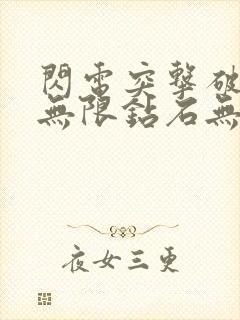 閃電突擊破
無限鈷石無
夜女三更